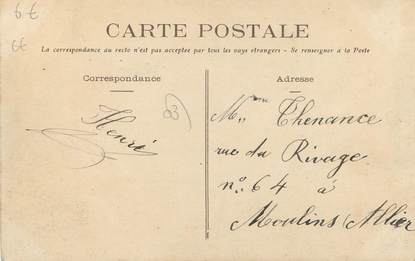 6€
CARTE POSTALE
La correspondance au recto n'est pas acceptée par tous les pays étrangers - Se renseigner à la Poste
Correspondance
Henri
83
Adresse
Mme Thenance
rue du Rivage
no. 64 à
Moulins (Allier